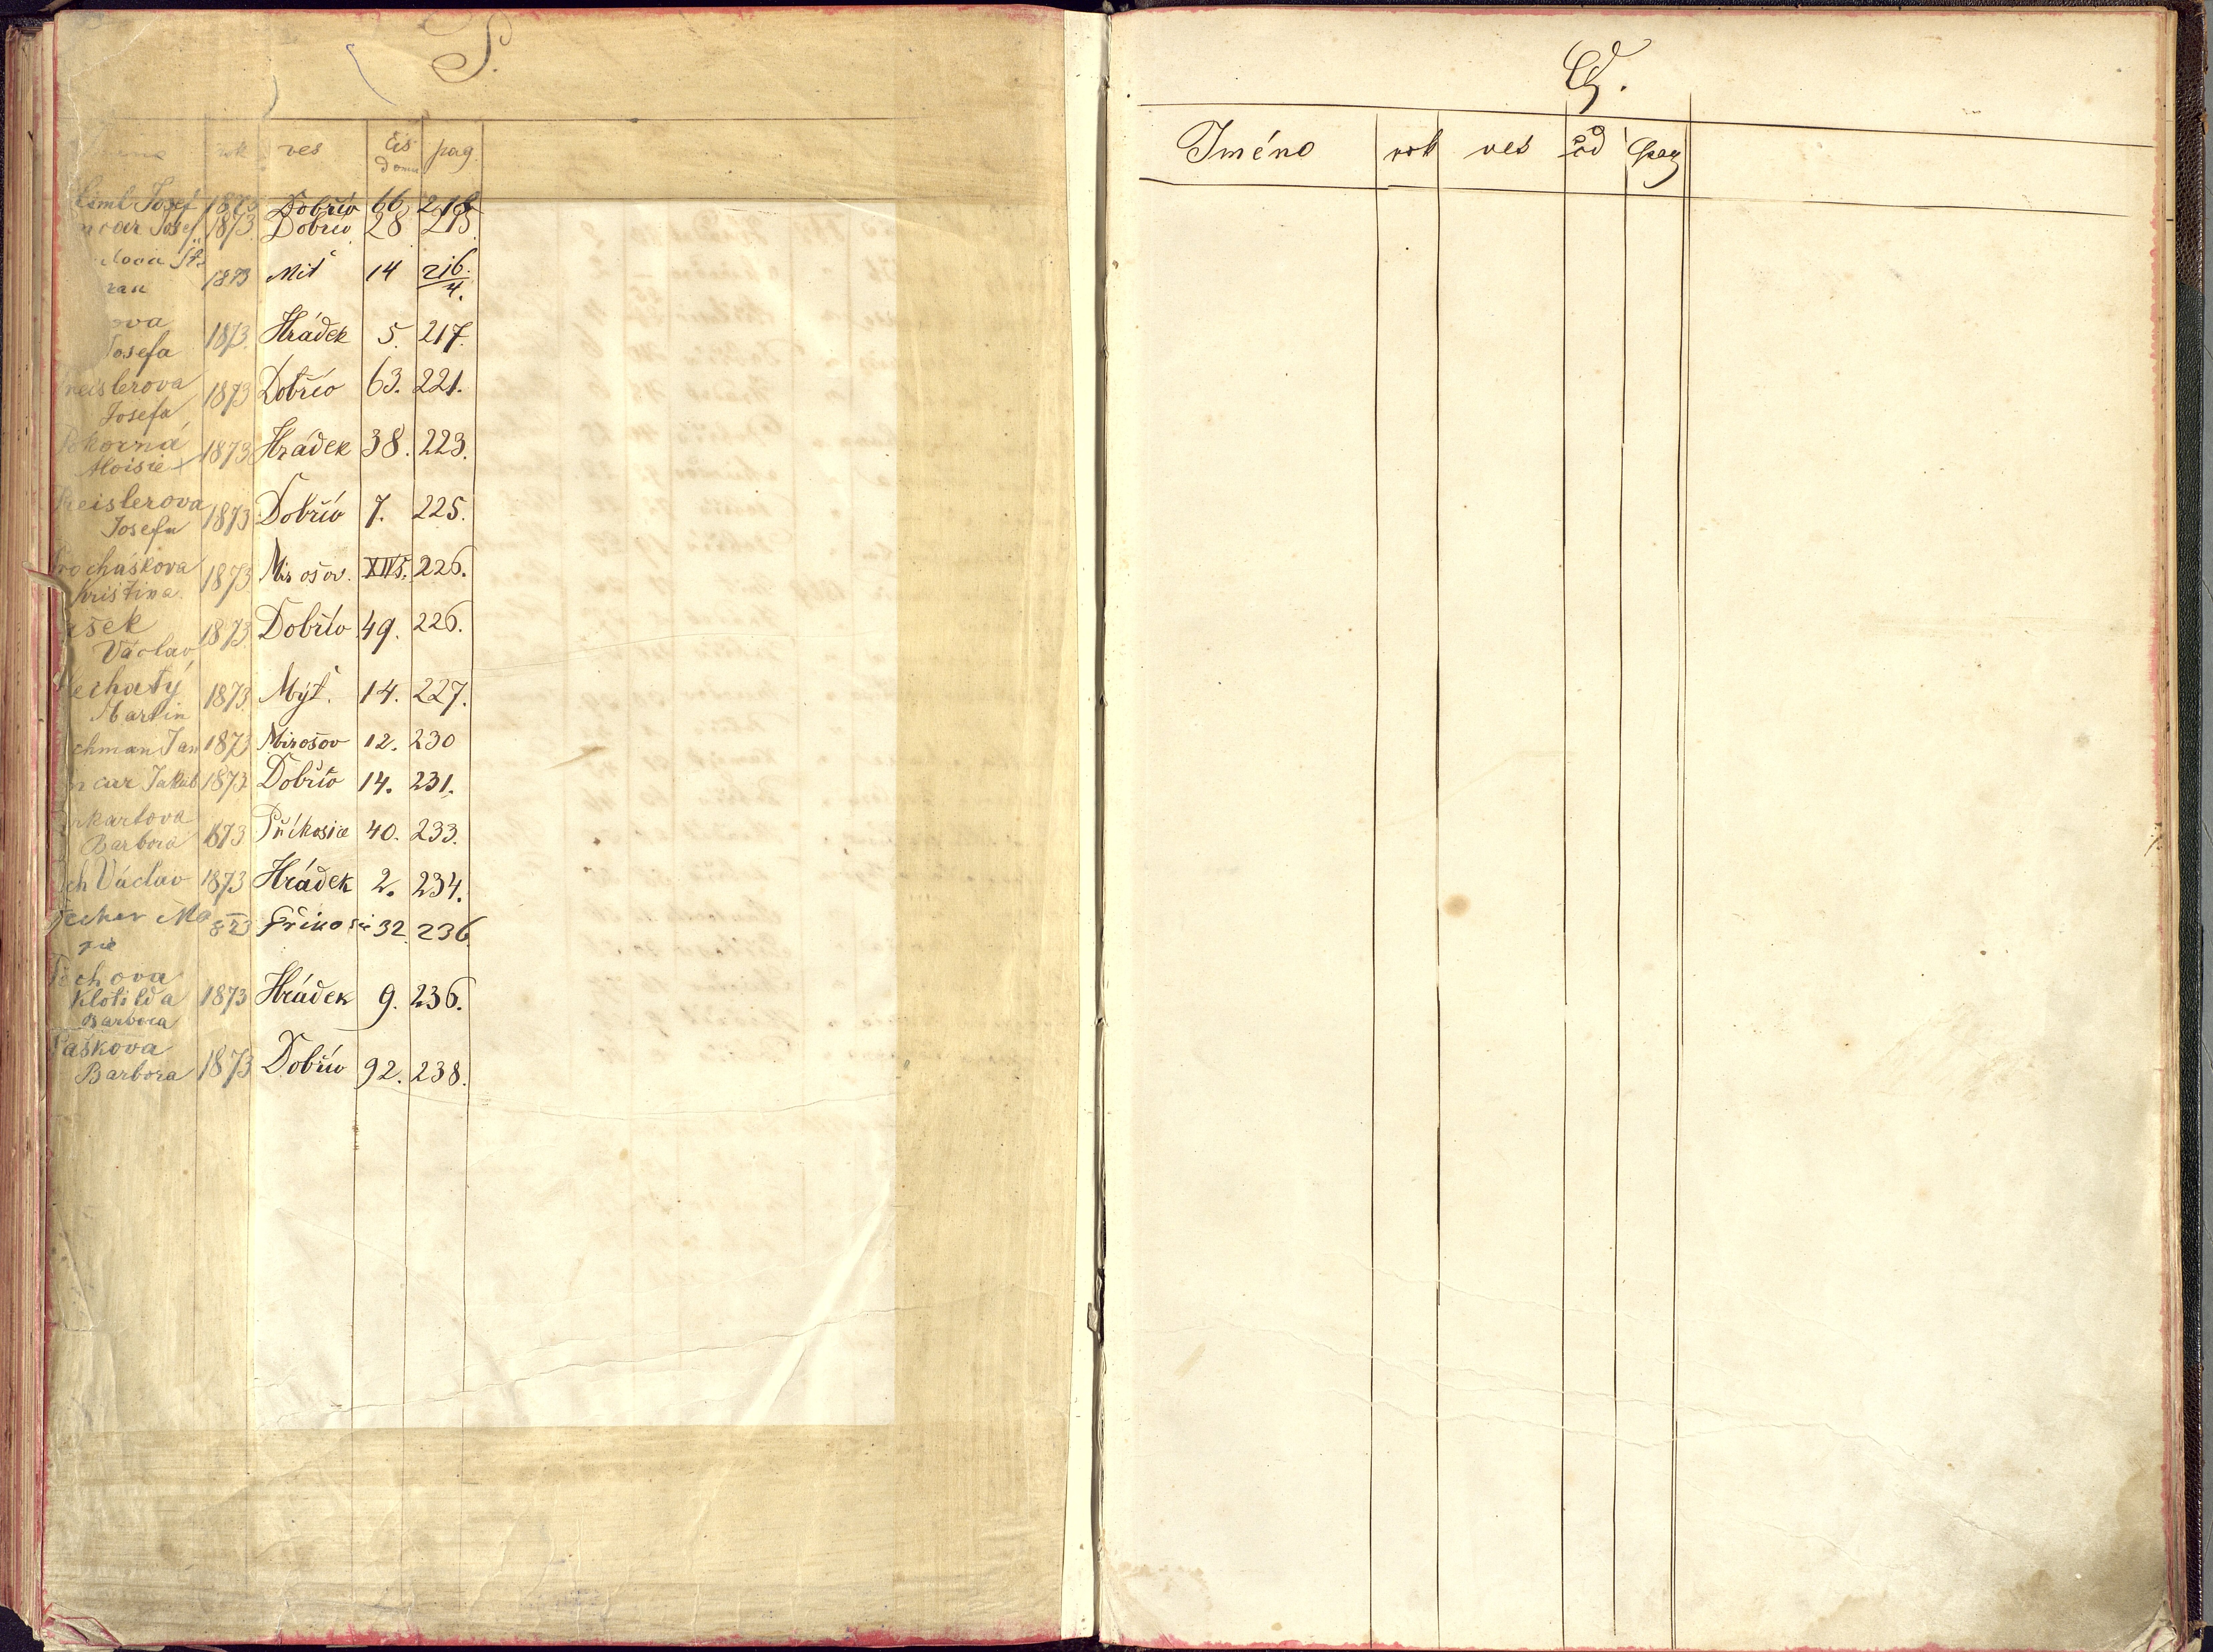 P.
rok ves čís domu pag.
Josef 1873 Dobřív 66 218
Josef 1873 Dobřív 28 215
1873 Mit 14 216/4.
ova
Josefa 1873 Hrádek 5. 217.
reislerova
Josefa 1873 Dobřív 63. 221.
Pokorná
Aloisie 1873 Hrádek 38. 223.
Preislerova
Josefa 1873 Dobřív 7. 225.
rocháskova
Kristina. 1873 Mirošov. XIV5. 226.
ešek
Václav 1873 Dobřív 49. 226.
lechatý
Martin 1873 Mýt. 14. 227.
chman Jan 1873 Mirošov 12. 230
ncar Jakub 1873 Dobřív 14. 231.
Barbora 1873 Příkosice 40. 233.
ch Václav 1873 Hrádek 2. 234.
32. 236
Pechova
Klotilda 1873 Hrádek 9. 236.
Barbora
Paškova
Barbora 1873 Dobřív 92. 238.
Q.
Iméno rok ves čd pag